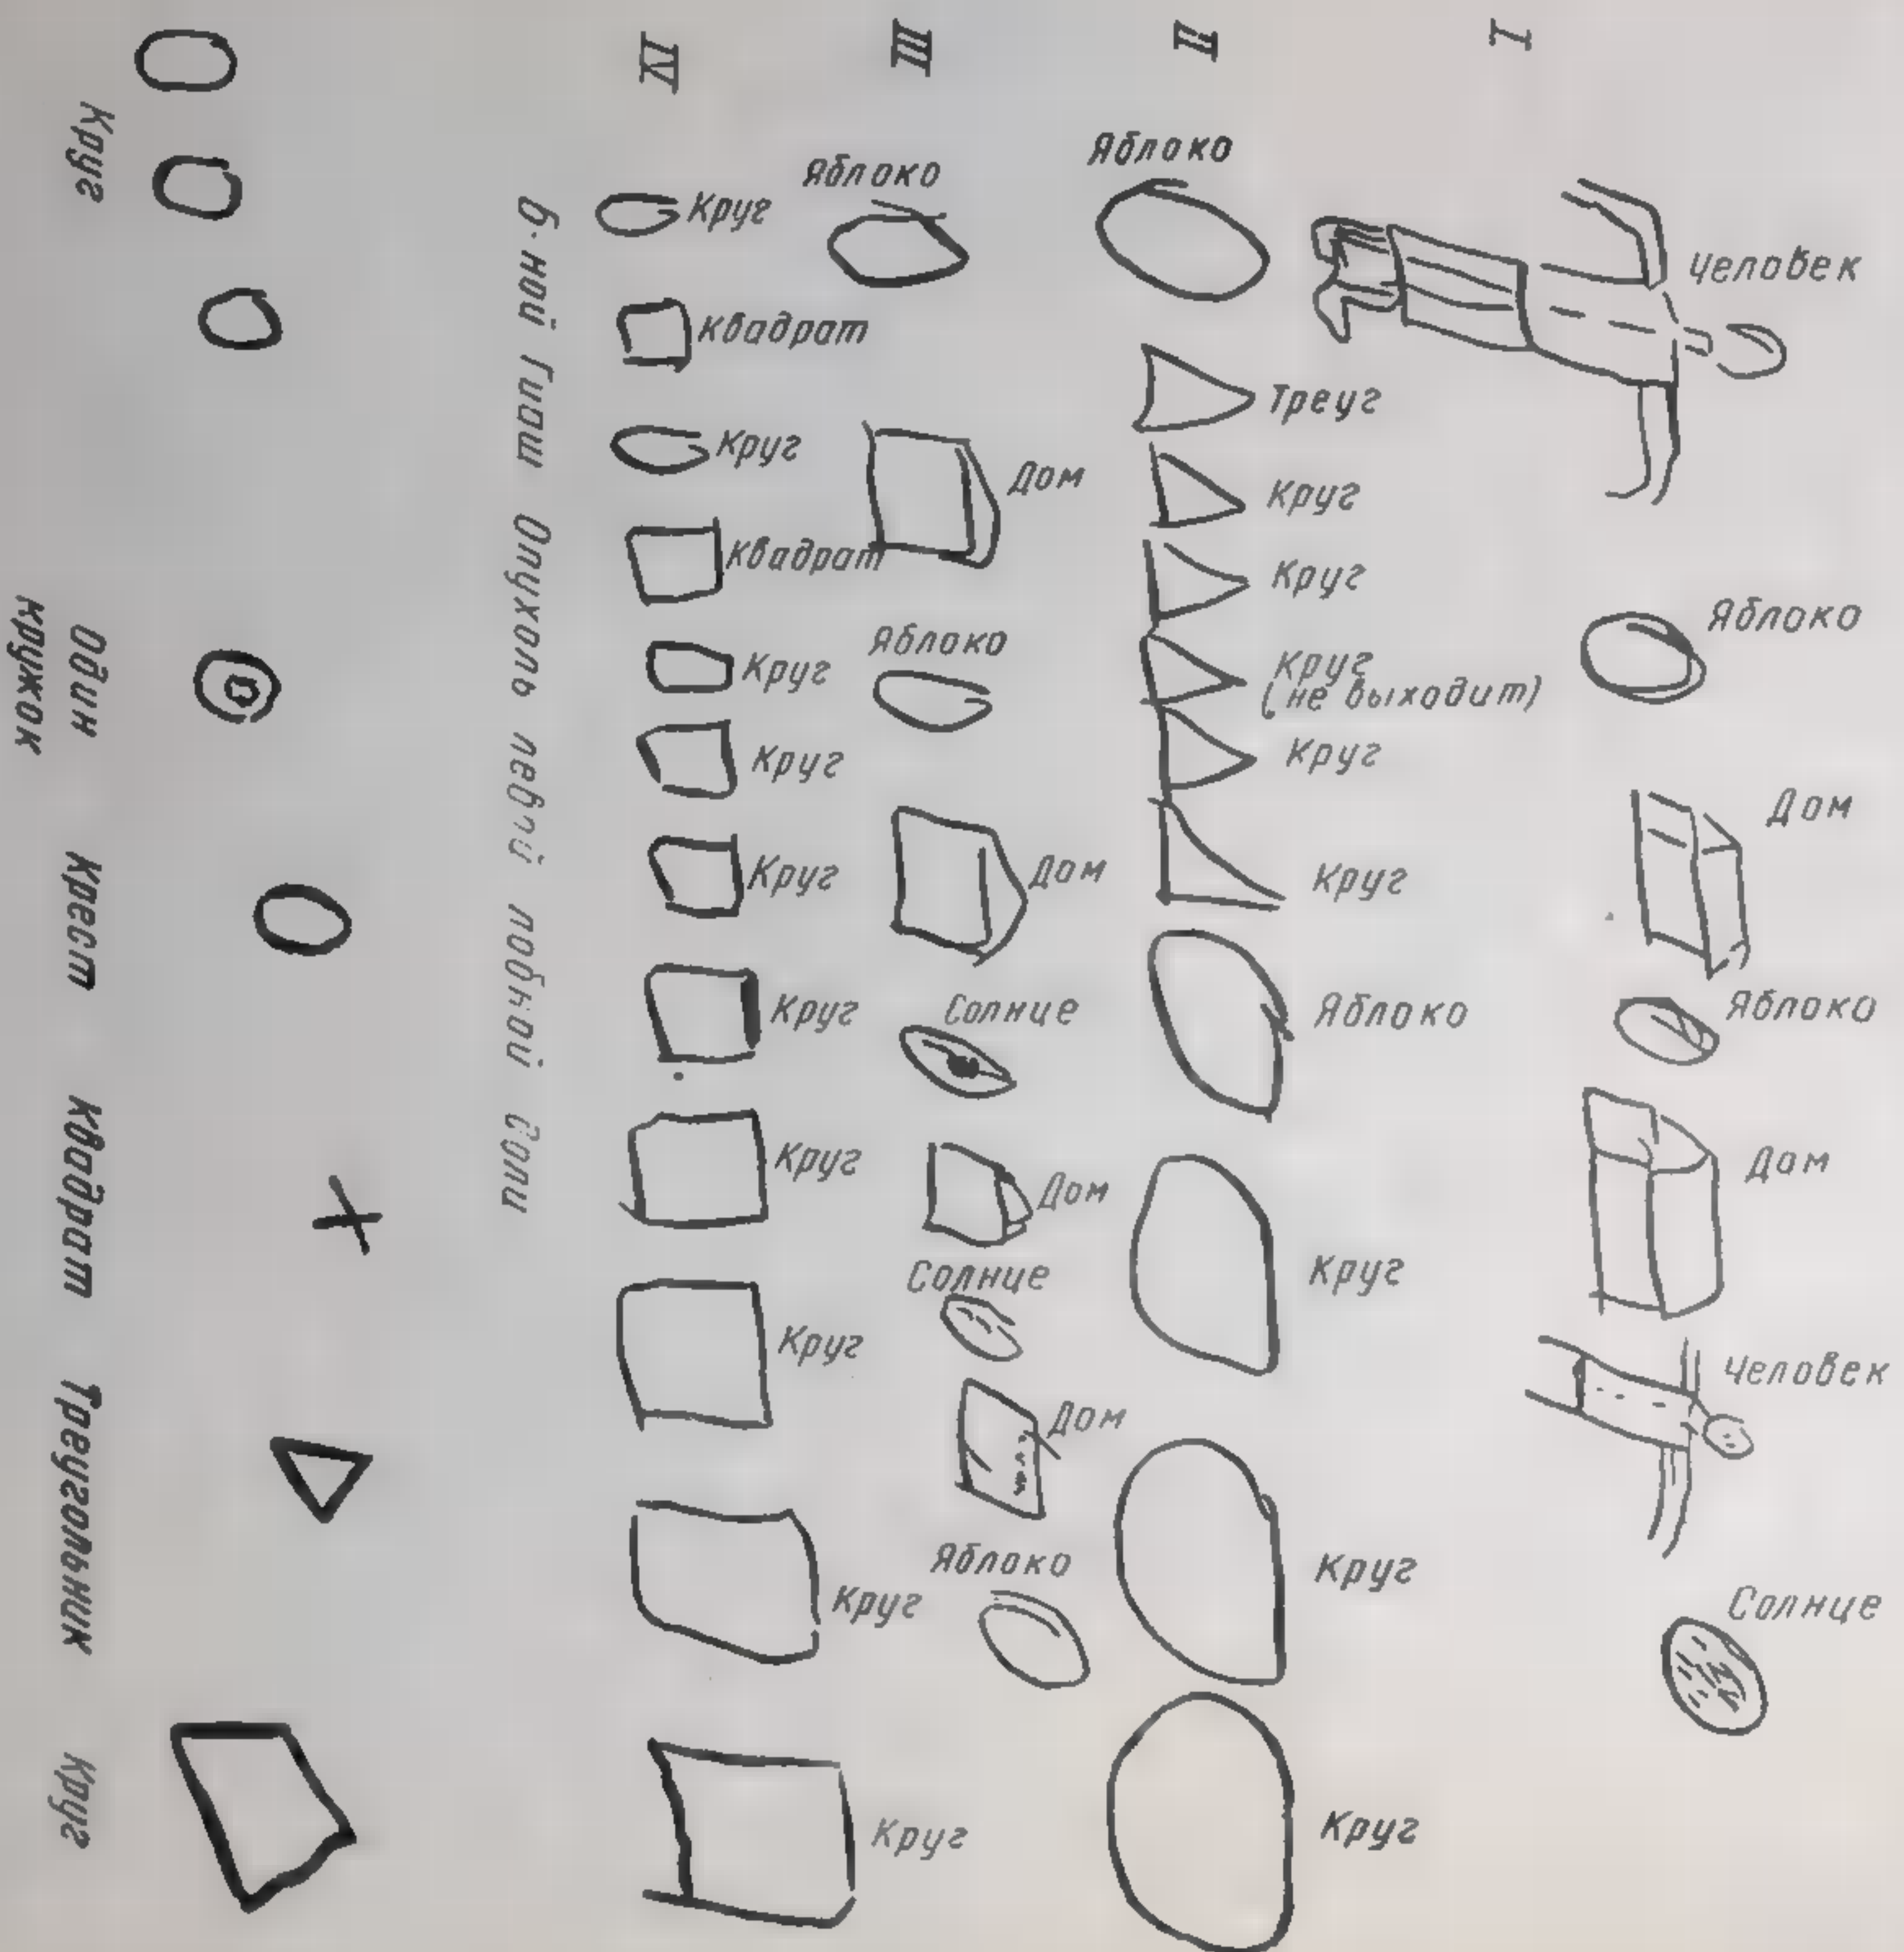 I
Человек
Яблоко
Дом
Яблоко
Дом
Человек
Солнце
II
Яблоко
Треуг
Круг
Круг
Круг
(не выходит)
Круг
Круг
Яблоко
Круг
Круг
Круг
III
Яблоко
Дом
Яблоко
Дом
Солнце
Дом
Солнце
Дом
Яблоко
IV
Круг
Квадрат
Круг
Квадрат
Круг
Круг
Круг
Круг
Круг
Круг
Круг
Круг
Б-ной Гиаш Опухоль левой лобной доли
Круг
Один
кружок
Крест
квадрат
Треугольник
Круг